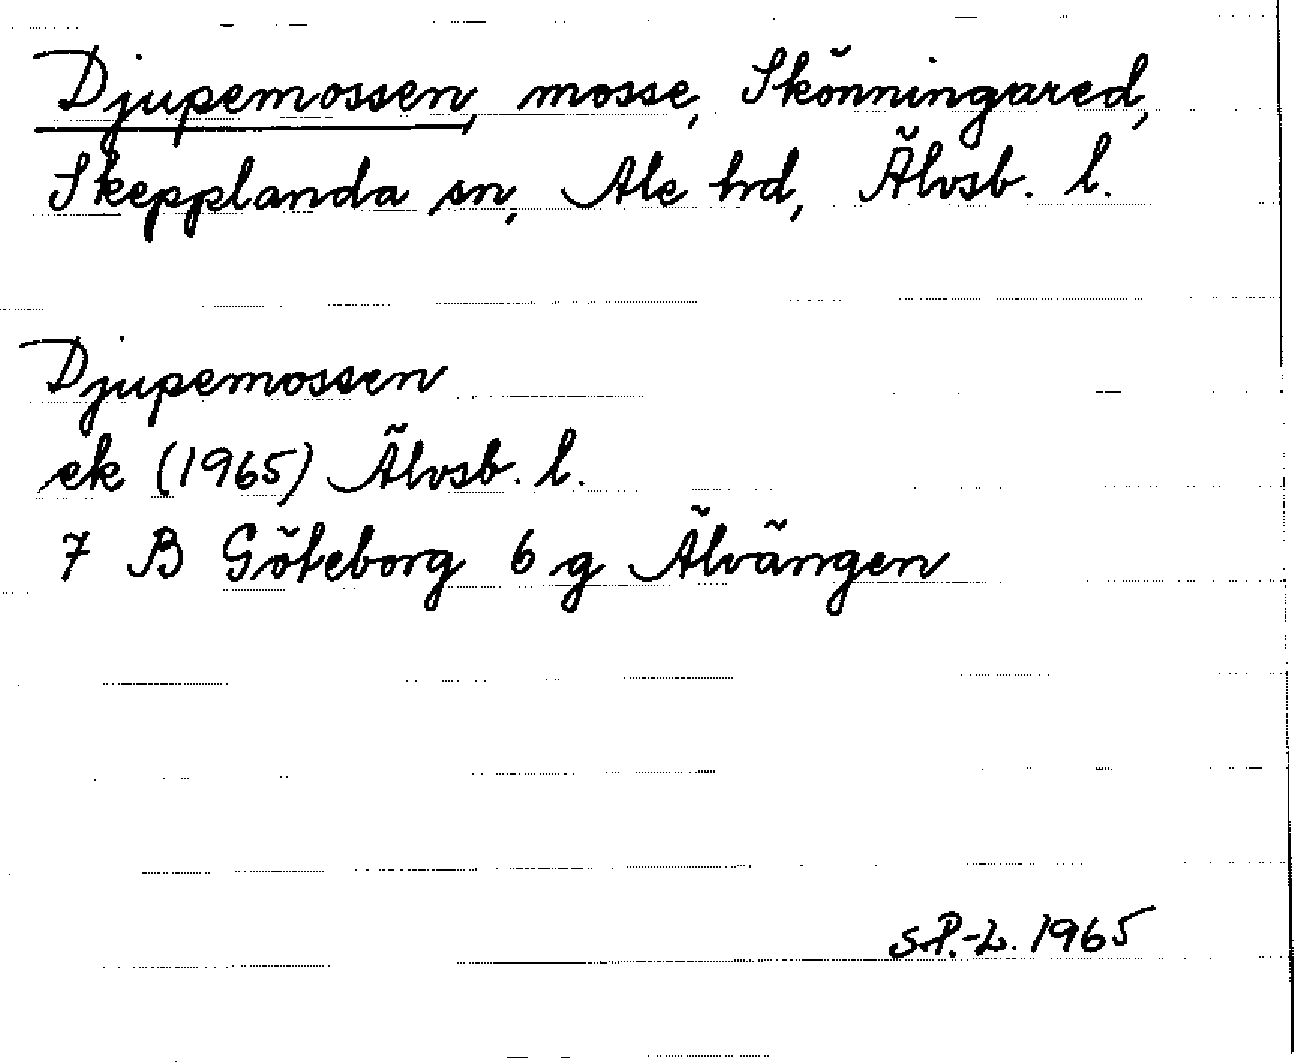 Djupemossen, mosse, Skönningared,
Skepplanda sn, Ale hd, Älvsb. l.
Djupemossen
ek (1965) Älvsb. l.
7 B Göteborg 6 g Älvängen
S.P.-L. 1965